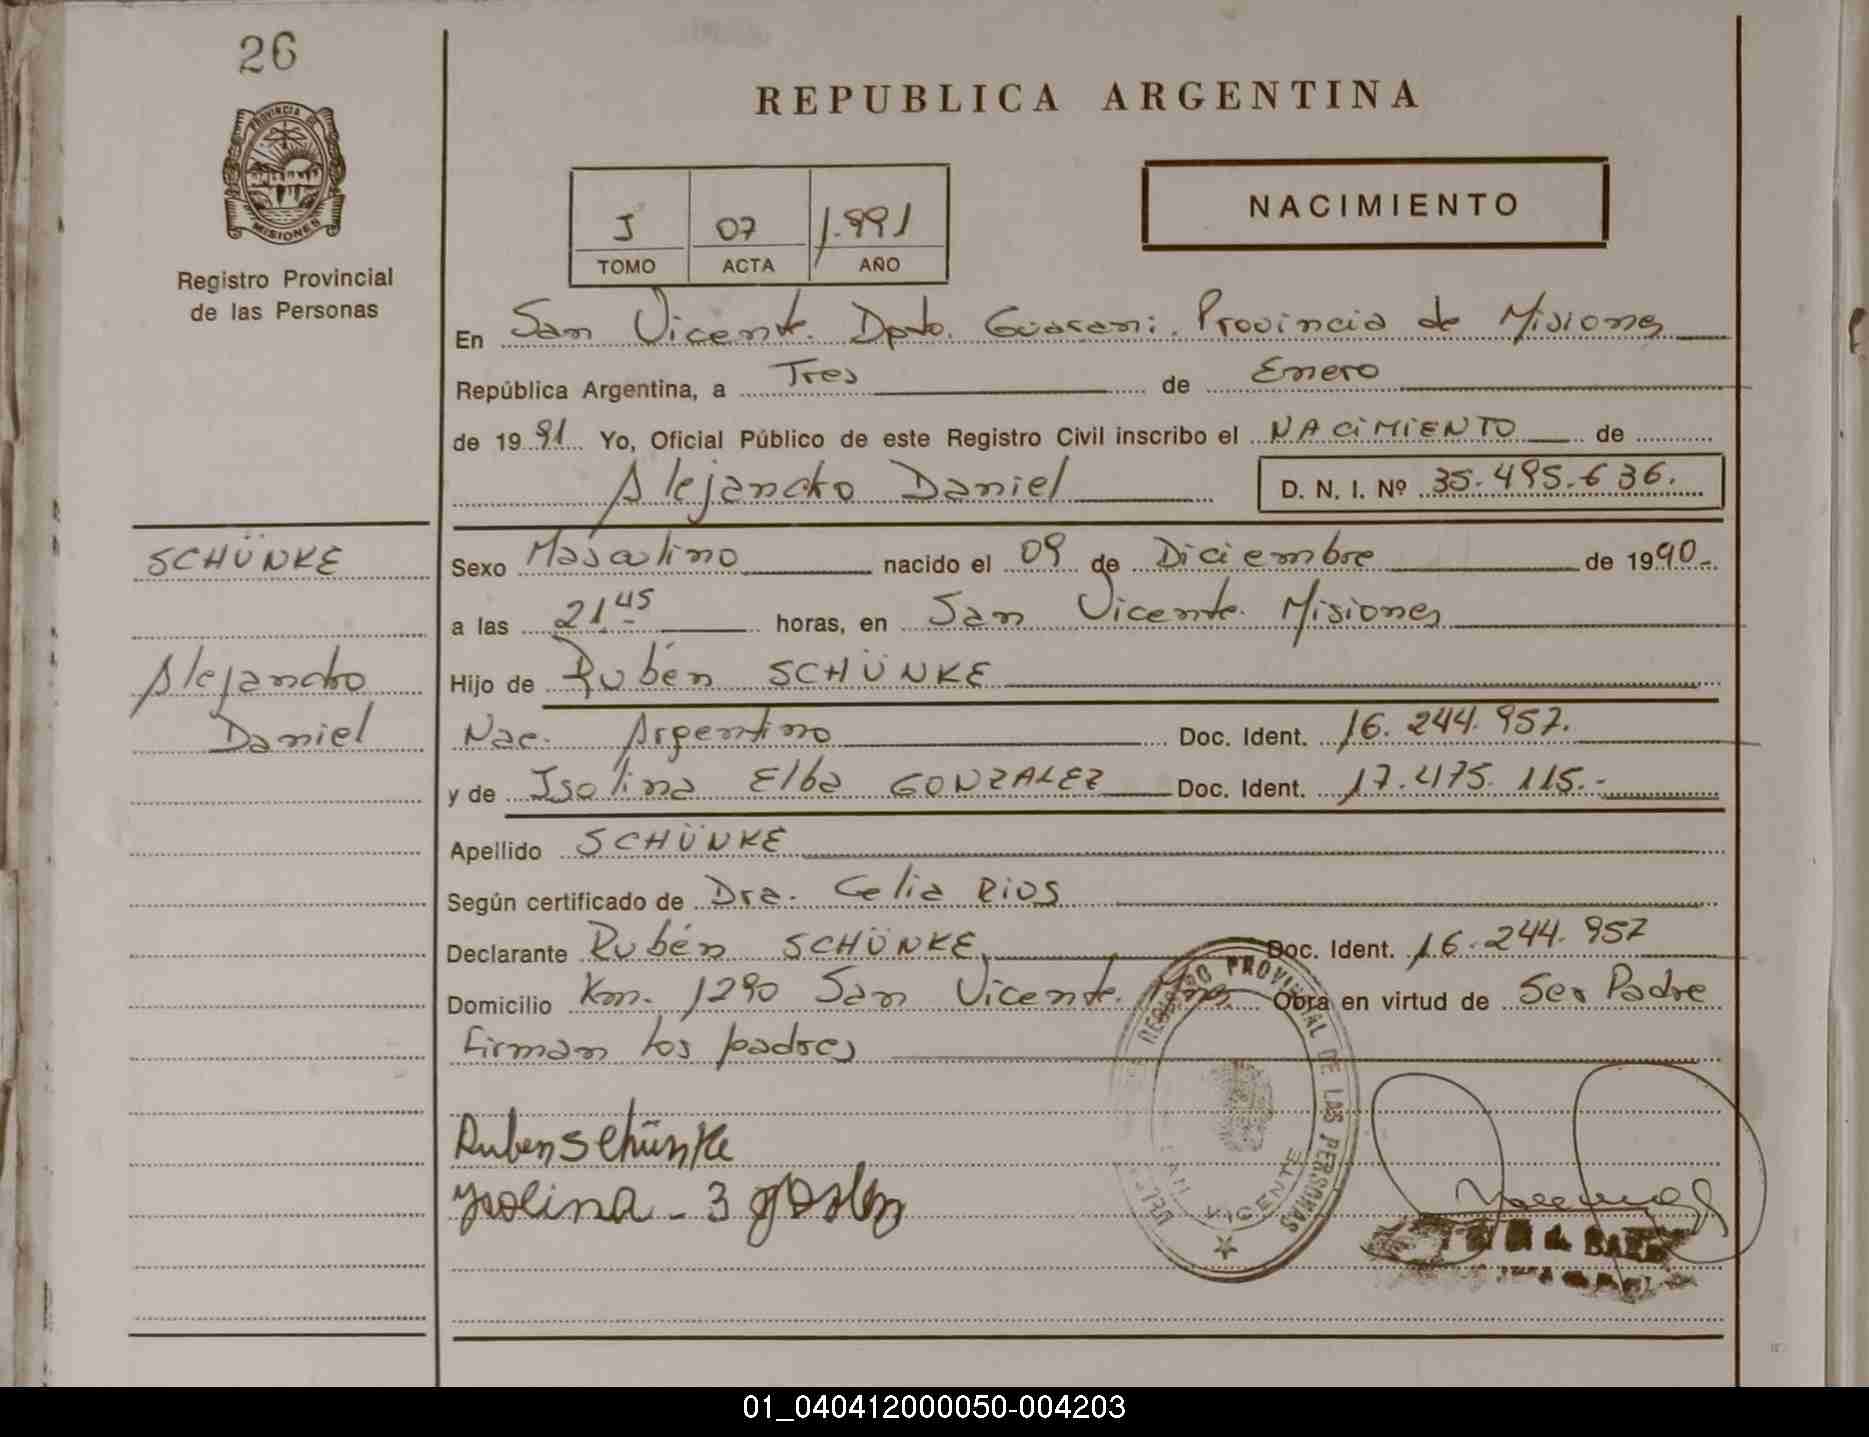 26
PROVINCIA DE
MISIONES
Registro Provincial
de las Personas
REPUBLICA ARGENTINA
J 07 1.991
TOMO ACTA AÑO
NACIMIENTO
En San Vicente. Dpto. Guarani. Provincia de Misiones
República Argentina, a Tres de Enero
de 1991 Yo, Oficial Público de este Registro Civil inscribo el NACIMIENTO de
Alejandro Daniel D. N. I. Nº 35.495.636.
SCHÜNKE
Alejandro
Daniel
Sexo Masculino nacido el 09 de Diciembre de 1990.-
a las 21 45 horas, en San Vicente. Misiones
Hijo de Rubén SCHÜNKE
Nac. Argentino Doc. Ident. 16.244.957.
y de Isolina Elba GONZALEZ Doc. Ident. 17.475.115.-
Apellido SCHÜNKE
Según certificado de Dra. Celia Rios
Declarante Rubén SCHÜNKE Doc. Ident. 16.244.957
Domicilio Km. 1290 San Vicente. Mnes Obra en virtud de Ser Padre
Firman los padres
Ruben Schünke
Ysolina
REGISTRO PROVINCIAL DE LAS PERSONAS
SAN VICENTE
01_040412000050-004203